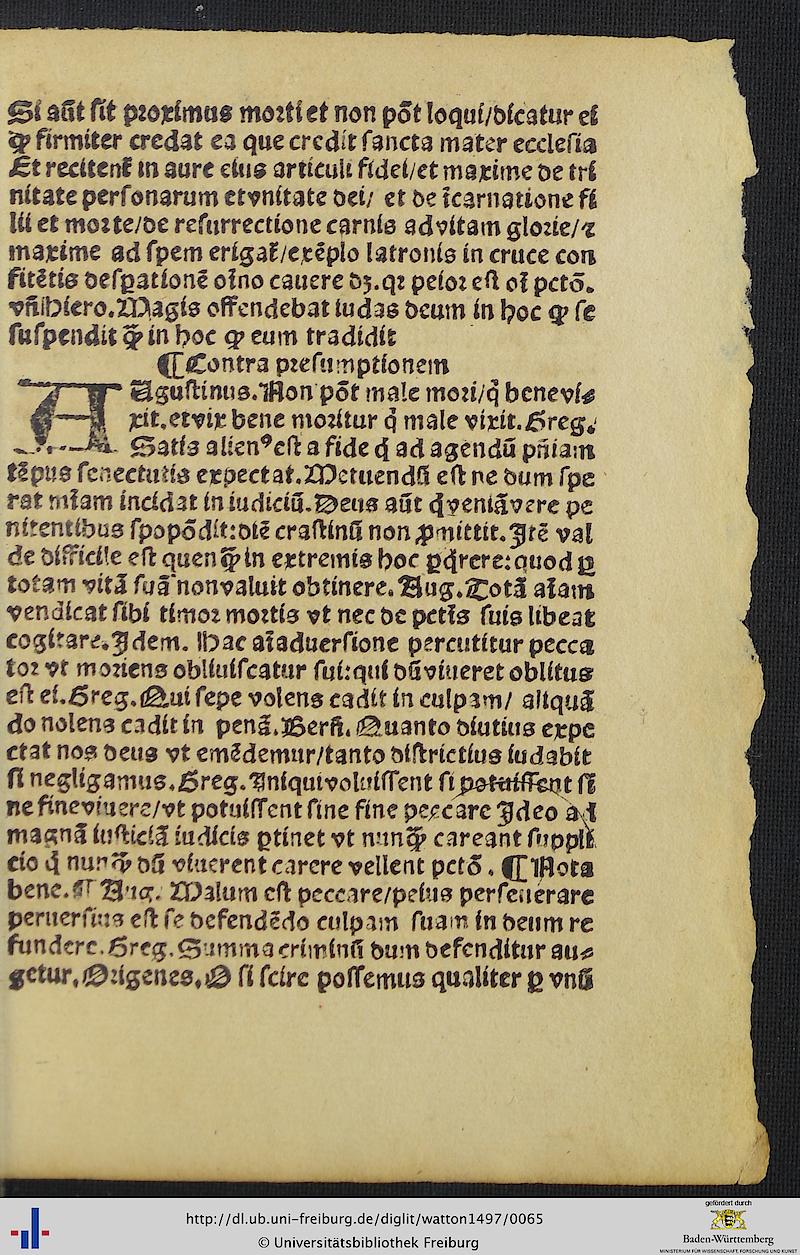 Si aūt ſit proximus morti et non pōt loqui/dicatur ei
ꝙ firmiter credat ea que credit ſancta mater eccleſia
Et recitent᷑ in aure eius articuli fidei/et maxime de tri
nitate perſonarum etvnitate dei/ et de īcarnatione fi
lii et morte/de reſurrectione carnis advitam glorie/⁊
maxime ad ſpem erigat᷑/exēplo latronis in cruce con
fitētis deſꝑationē oīno cauere dꝫ.qꝛ peior eſt oī pctō.
vñ Hiero.Magis offendebat iudas deum in hoc ꝙ ſe
ſuſpendit ꝙ̄ in hoc ꝙ eum tradidit
¶Contra preſumptionem
AUguſtinus.Non pōt male mori/q̇ benevi⸗
xit.etvix bene moritur q̇ male vixit.Greg.
Satis alienꝰ eſt a fide q̇ ad agendū pñiam
tēpus ſenectutis expectat.Metuendū eſt ne dum ſpe
rat mīam incidat in iudiciū.Deus aūt q̇veniāvere pe
nitentibus ſpopōdit:diē craſtinū non ꝓmittit.Itē val
de difficile eſt quenꝙ̄ in extremis hoc ꝑq̇rere:quod ꝑ
totam vitā ſuā nonvaluit obtinere.Aug.Totā aīam
vendicat ſibi timor mortis vt nec de pctīs ſuis libeat
cogitare.Idem. Hac aīaduerſione percutitur pecca
tor vt moriens obliuiſcatur ſui:qui dūviueret oblitus
eſt ei.Greg.Qui ſepe volens cadit in culpam/ aliquā
do nolens cadit in penā.Berñ.Quanto diutius expe
ctat nos deus vt emēdemur/tanto diſtrictius iudabit
ſi negligamus.Greg.Iniquivoluiſſent ſi potuiſſent ſi
ne fineviuere/vt potuiſſent ſine fine peccare Ideo ad
magnā iuſticiā iudicis ꝑtinet vt nunꝙ̄ careant ſuppli
cio q̇ nunꝙ̄ dū viuerent carere vellent pctō . ¶Nota
bene.¶ Aug. Malum eſt peccare/peius perſeuerare
peruerſius eſt ſe defendēdo culpam ſuam in deum re
fundere.Greg.Summa criminū dum defenditur au⸗
getur.Origenes.O ſi ſcire poſſemus qualiter ꝑ vnū
gefördert durch
http://dl.ub.uni-freiburg.de/diglit/watton1497/0065
© Universitätsbibliothek Freiburg
Baden-Württemberg
MINISTERIUM FÜR WISSENSCHAFT, FORSCHUNG UND KUNST